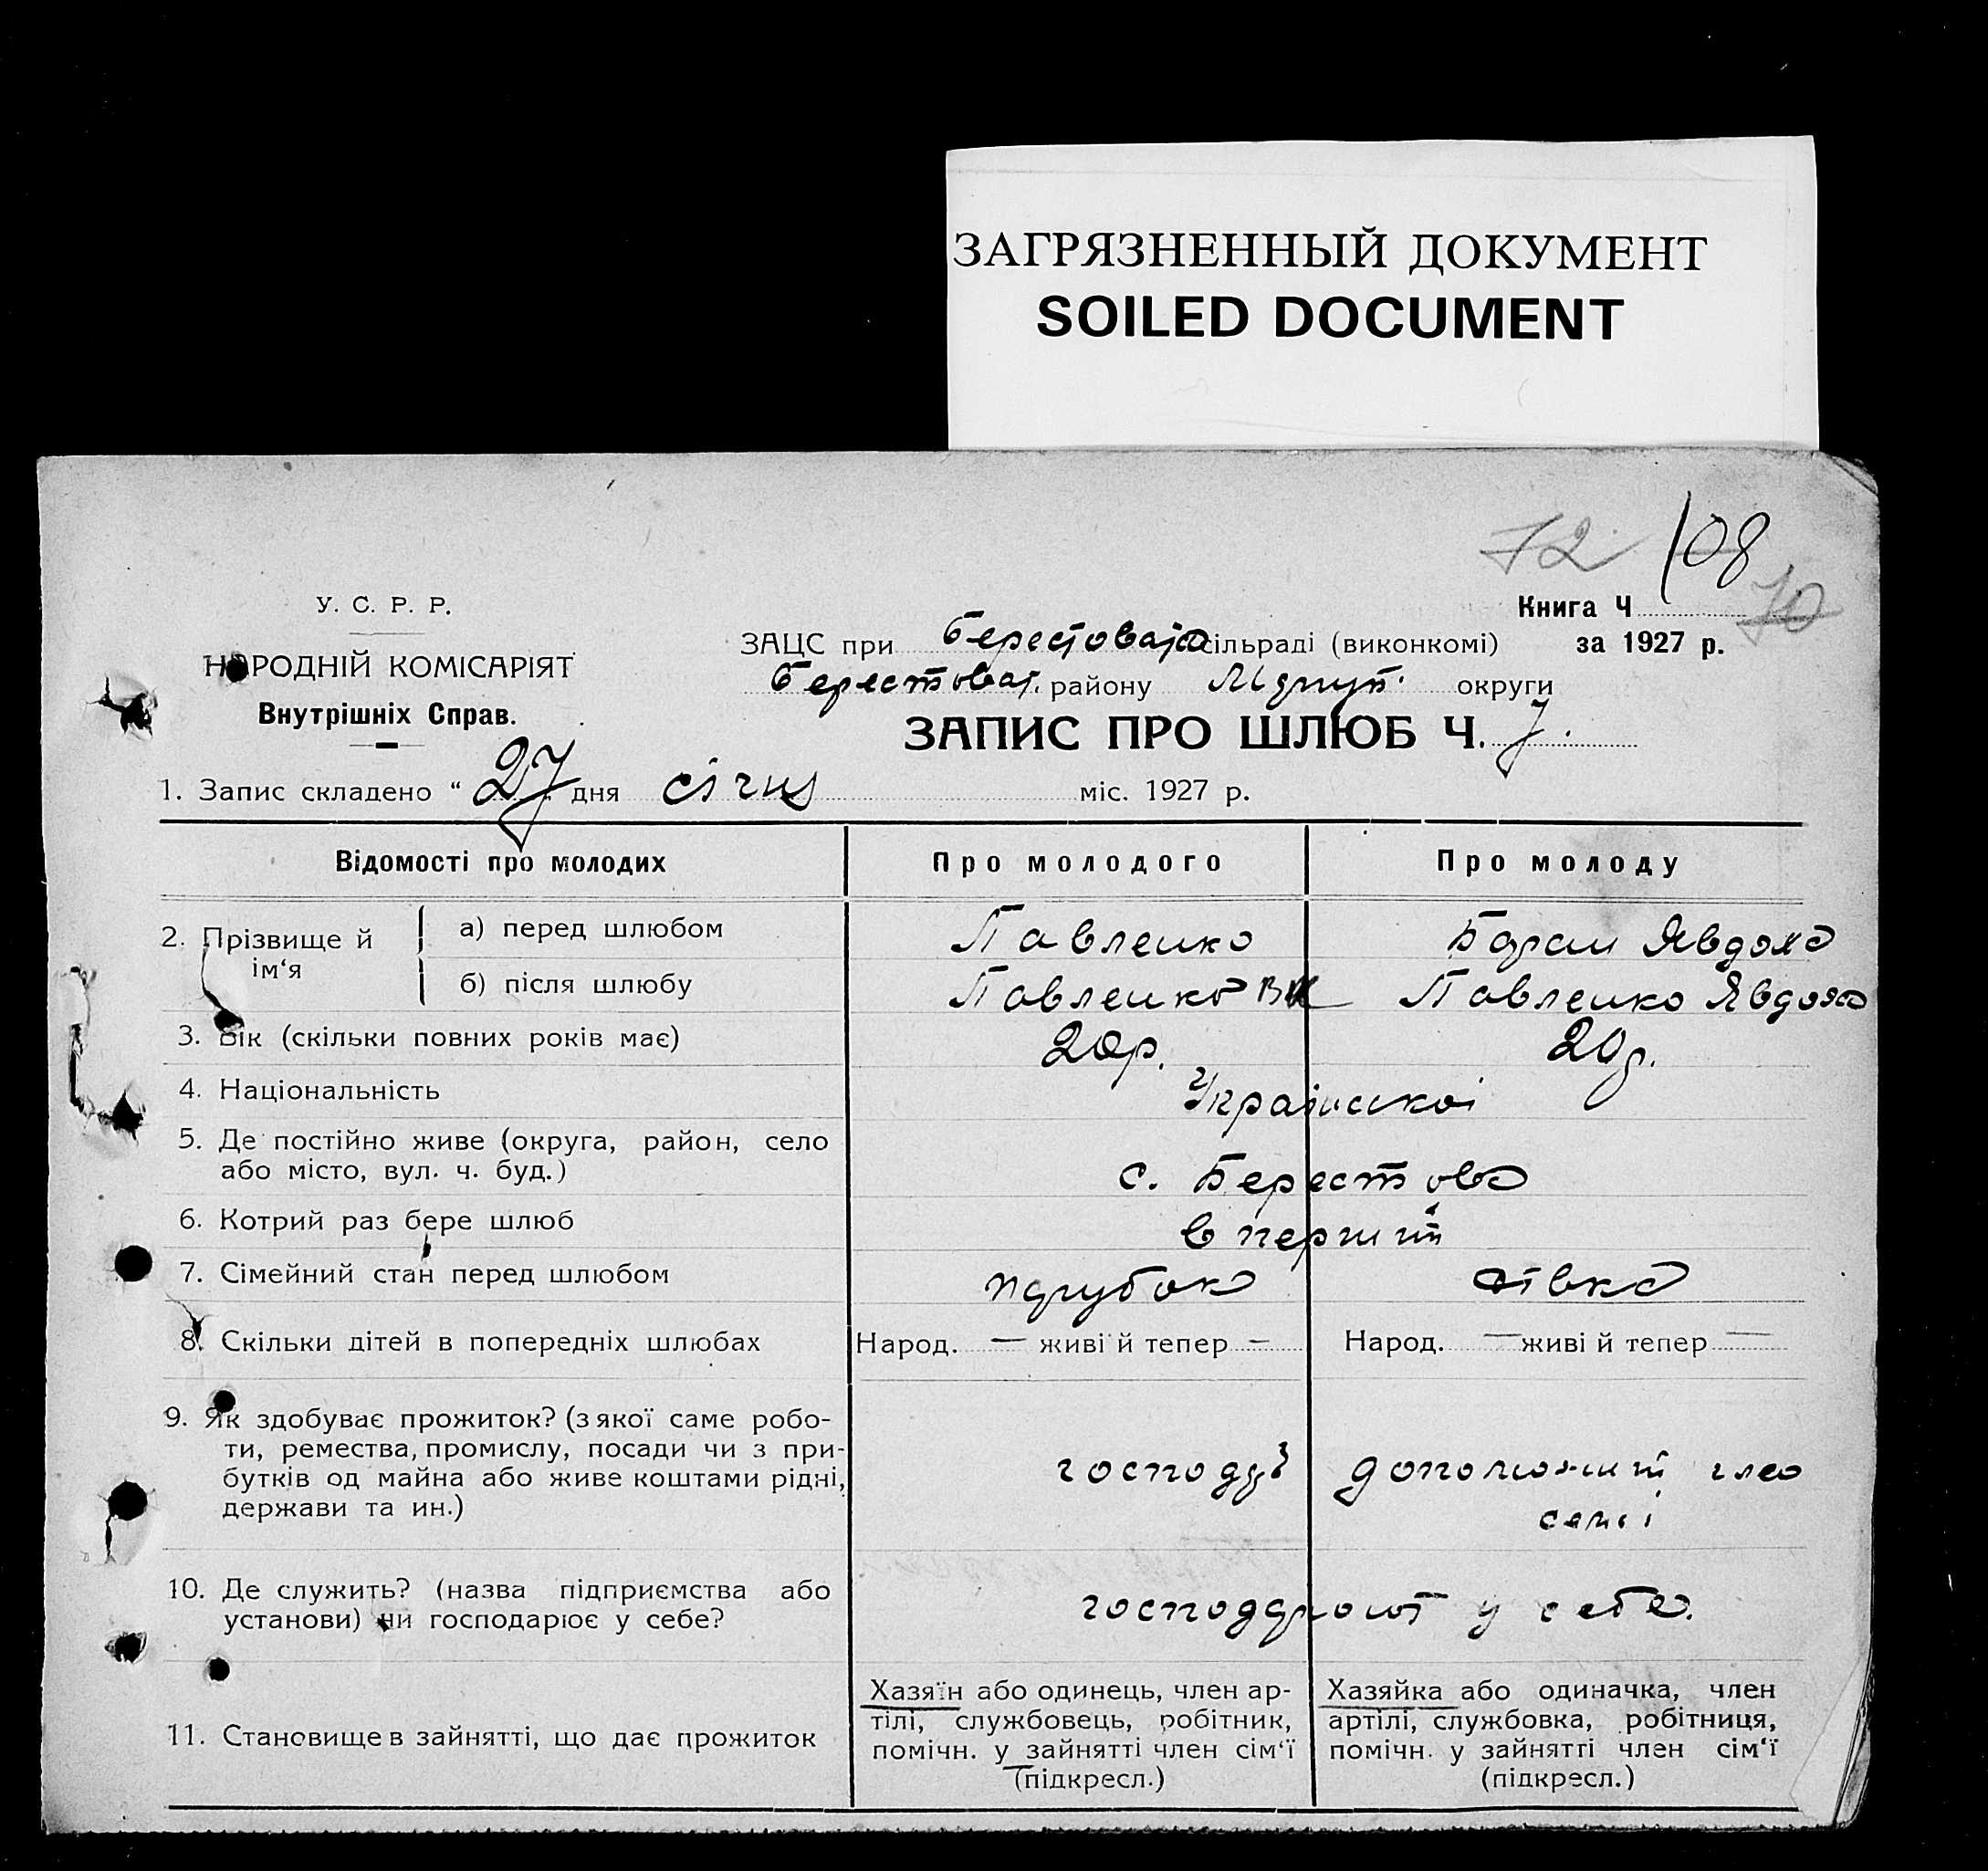 ЗАГРЯЗНЕННЫЙ ДОКУМЕНТ
SOILED DOCUMENT
72 108
70
У. С. Р. Р.
НАРОДНІЙ КОМІСАРІЯТ
Внутрішніх Справ.
Книга Ч
ЗАЦС при сільраді (виконкомі) за 1927 р.
району округи
ЗАПИС ПРО ШЛЮБ Ч. 7.
1. Запис складено “ 27 дня січня міс. 1927 р.
Відомості про молодих Про молодого Про молоду
2. Прізвище й ім‘я
а) перед шлюбом Павленко Баран Явдоха
б) після шлюбу Павленко Павленко Явдоха
3. Вік (скільки повних років має) 20р. 20р.
4. Національність Української
5. Де постійно живе (округа, район, село
або місто, вул. ч. буд.) с. Берестова
6. Котрий раз бере шлюб в перший
7. Сімейний стан перед шлюбом парубок дівка
8. Скільки дітей в попередніх шлюбах Народ. — живі й тепер — Народ. — живі й тепер —
9. Як здобуває прожиток? (з якої саме робо-
ти, ремества, промислу, посади чи з при-
бутків од майна або живе коштами рідні,
держави та ин.)
господар
семї
10. Де служить? (назва підприємства або
установи) чи господарює у себе?
господарюют у себе.
11. Становище в зайнятті, що дає прожиток
Хазяїн або одинець, член ар-
тілі, службовець, робітник,
помічн. у зайнятті член сім‘ї
(підкресл.)
Хазяйка або одиначка, член
артілі, службовка, робітниця,
помічн. у зайнятті член сім‘ї
(підкресл.)